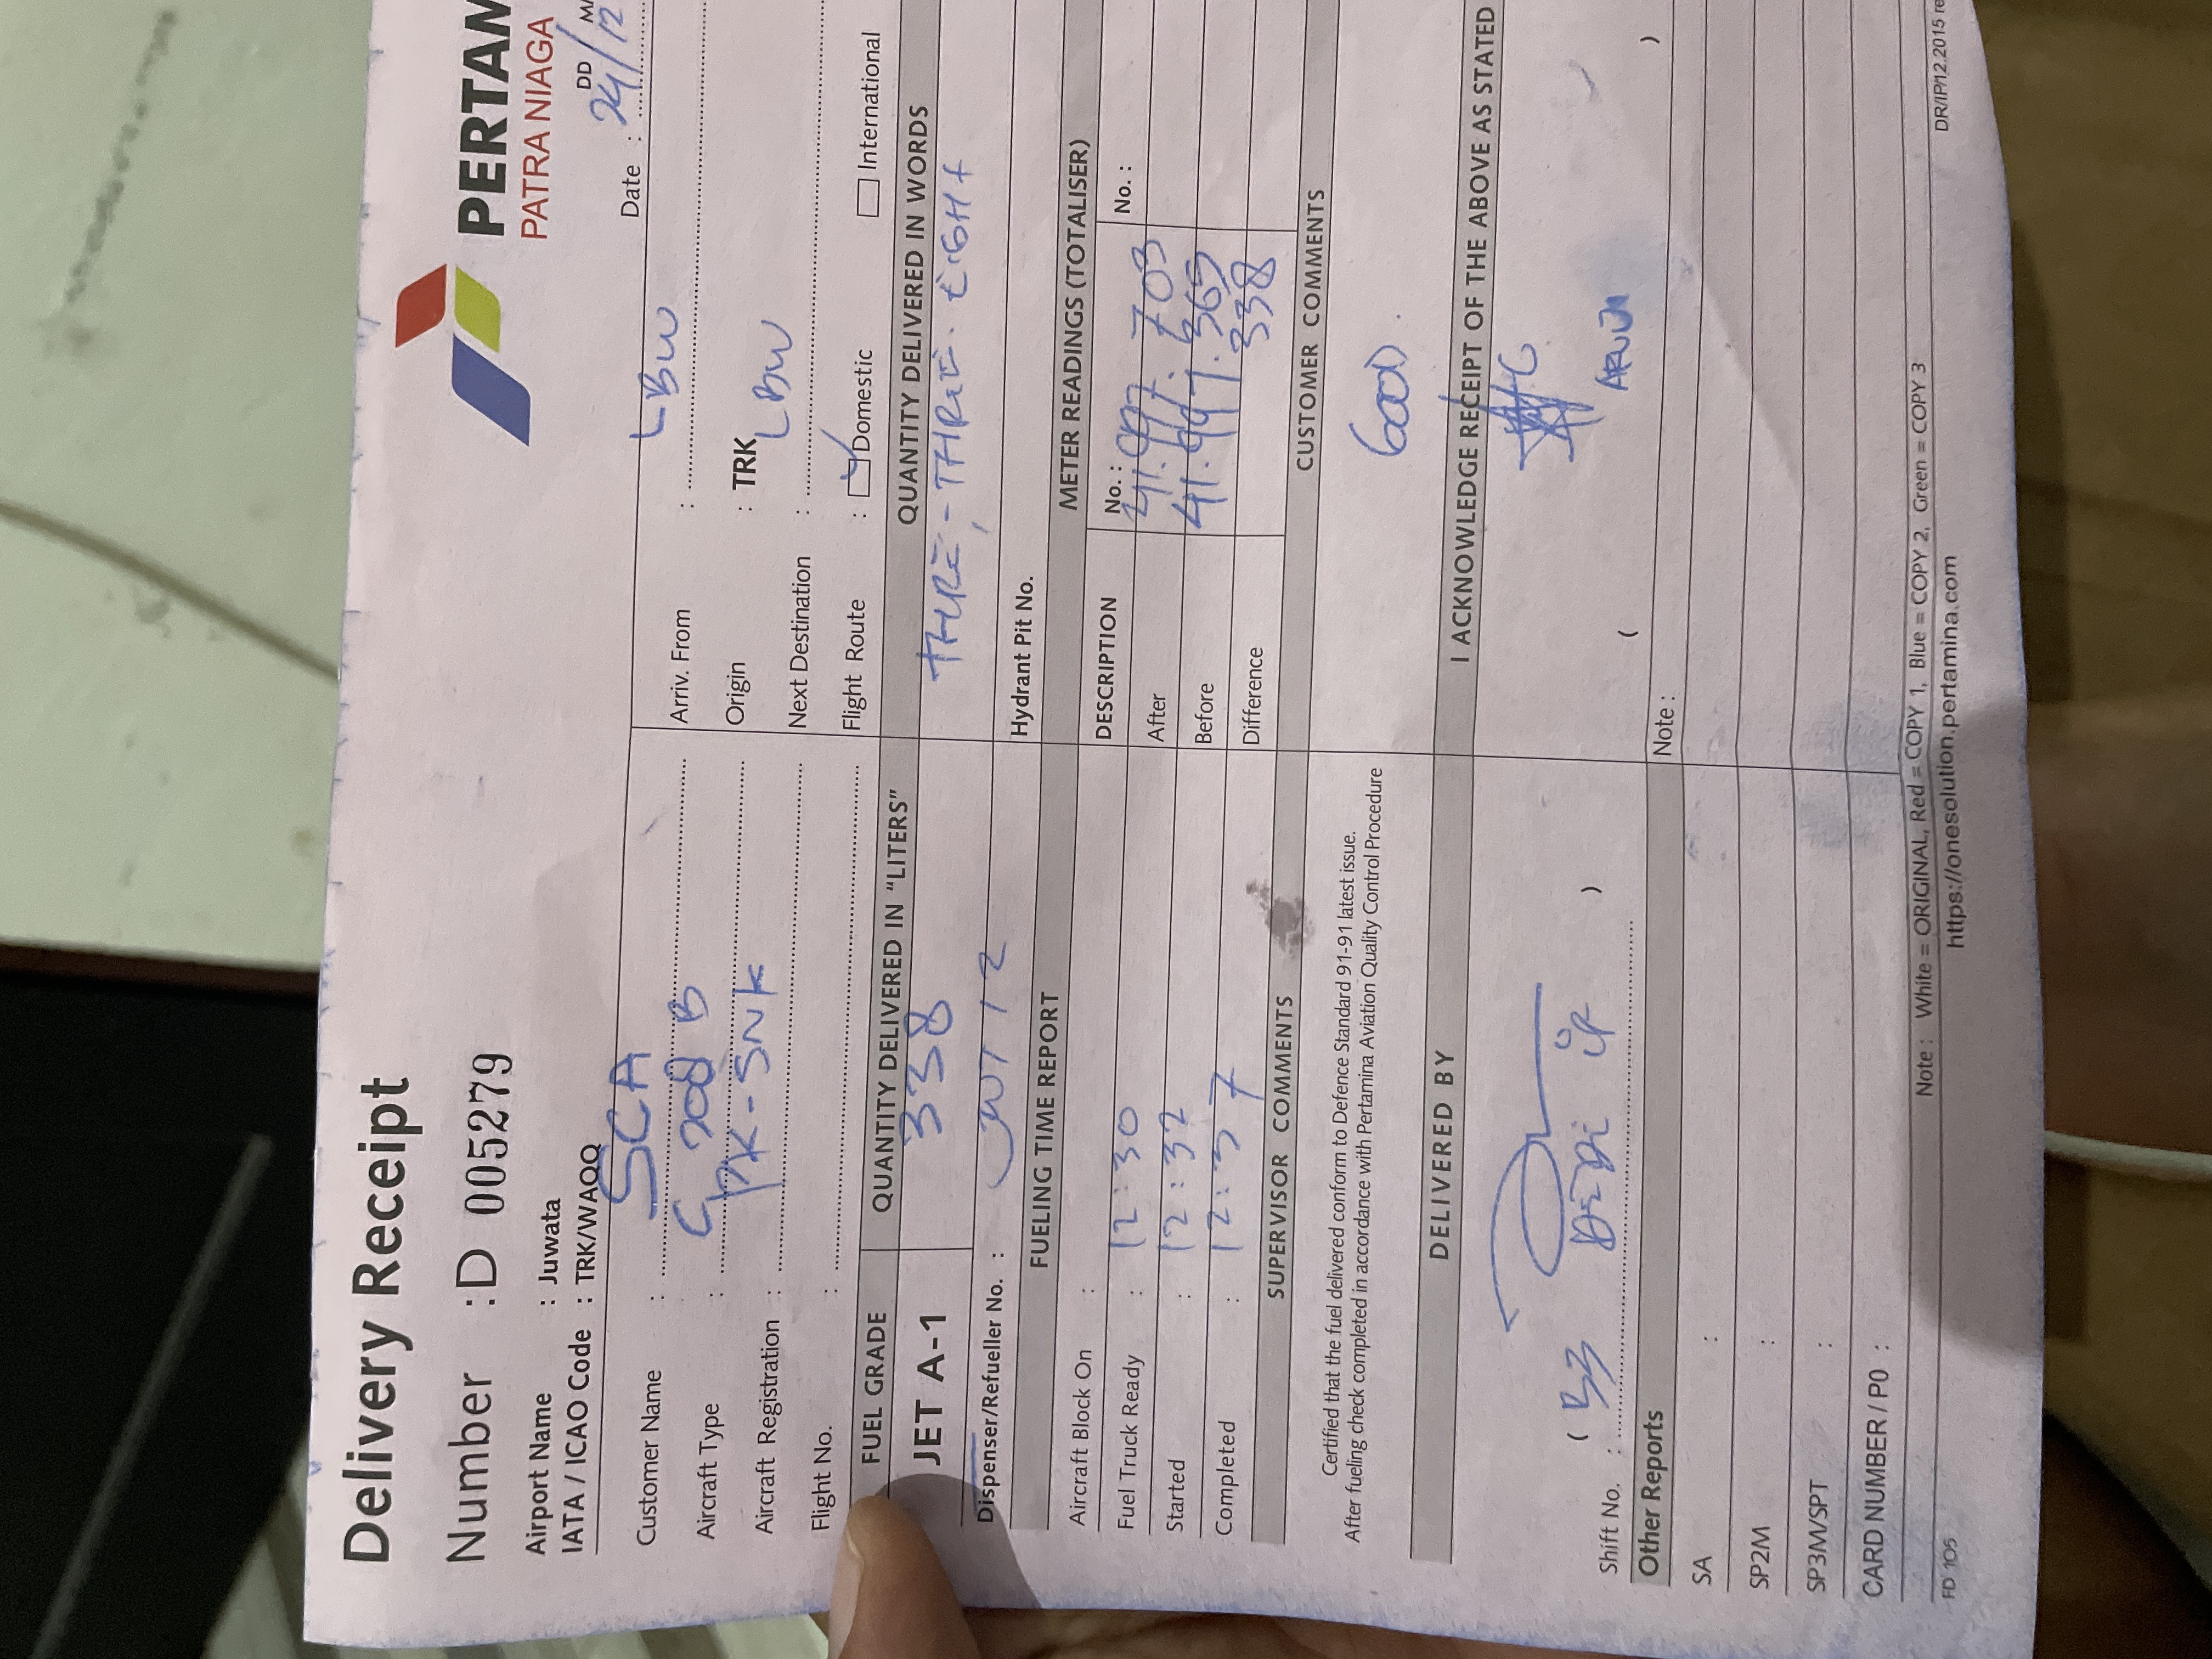 Delivery Receipt
PERTAM
PATRA NIAGA
Number : D 005279
Airport Name : Juwata
IATA / ICAO Code : TRK/WAQQ
DD
Date : 24/12
Customer Name : SCA
Aircraft Type : C 208 B
Aircraft Registration : PK-SNK
Flight No. :
Arriv. From : LBW
Origin : TRK
Next Destination : LBW
Flight Route : Domestic International
FUEL GRADE QUANTITY DELIVERED IN "LITERS" QUANTITY DELIVERED IN WORDS
JET A-1 338 THRE - THREE - EIGHT
Dispenser/Refueller No. : JWT 12
Hydrant Pit No.
FUELING TIME REPORT METER READINGS (TOTALISER)
Aircraft Block On :
Fuel Truck Ready : 12:30
Started : 12:32
Completed : 12:37
DESCRIPTION No. : No. :
After 703
Before
Difference 338
SUPERVISOR COMMENTS CUSTOMER COMMENTS
Certified that the fuel delivered conform to Defence Standard 91-91 latest issue.
After fueling check completed in accordance with Pertamina Aviation Quality Control Procedure
GOOD.
DELIVERED BY I ACKNOWLEDGE RECEIPT OF THE ABOVE AS STATED
( )
( )
Shift No. :
Other Reports Note :
SA :
SP2M :
SP3M/SPT :
CARD NUMBER / PO :
Note : White = ORIGINAL, Red = COPY 1, Blue = COPY 2, Green = COPY 3
FD 105 https://onesolution.pertamina.com DR/IP/12.2015 re